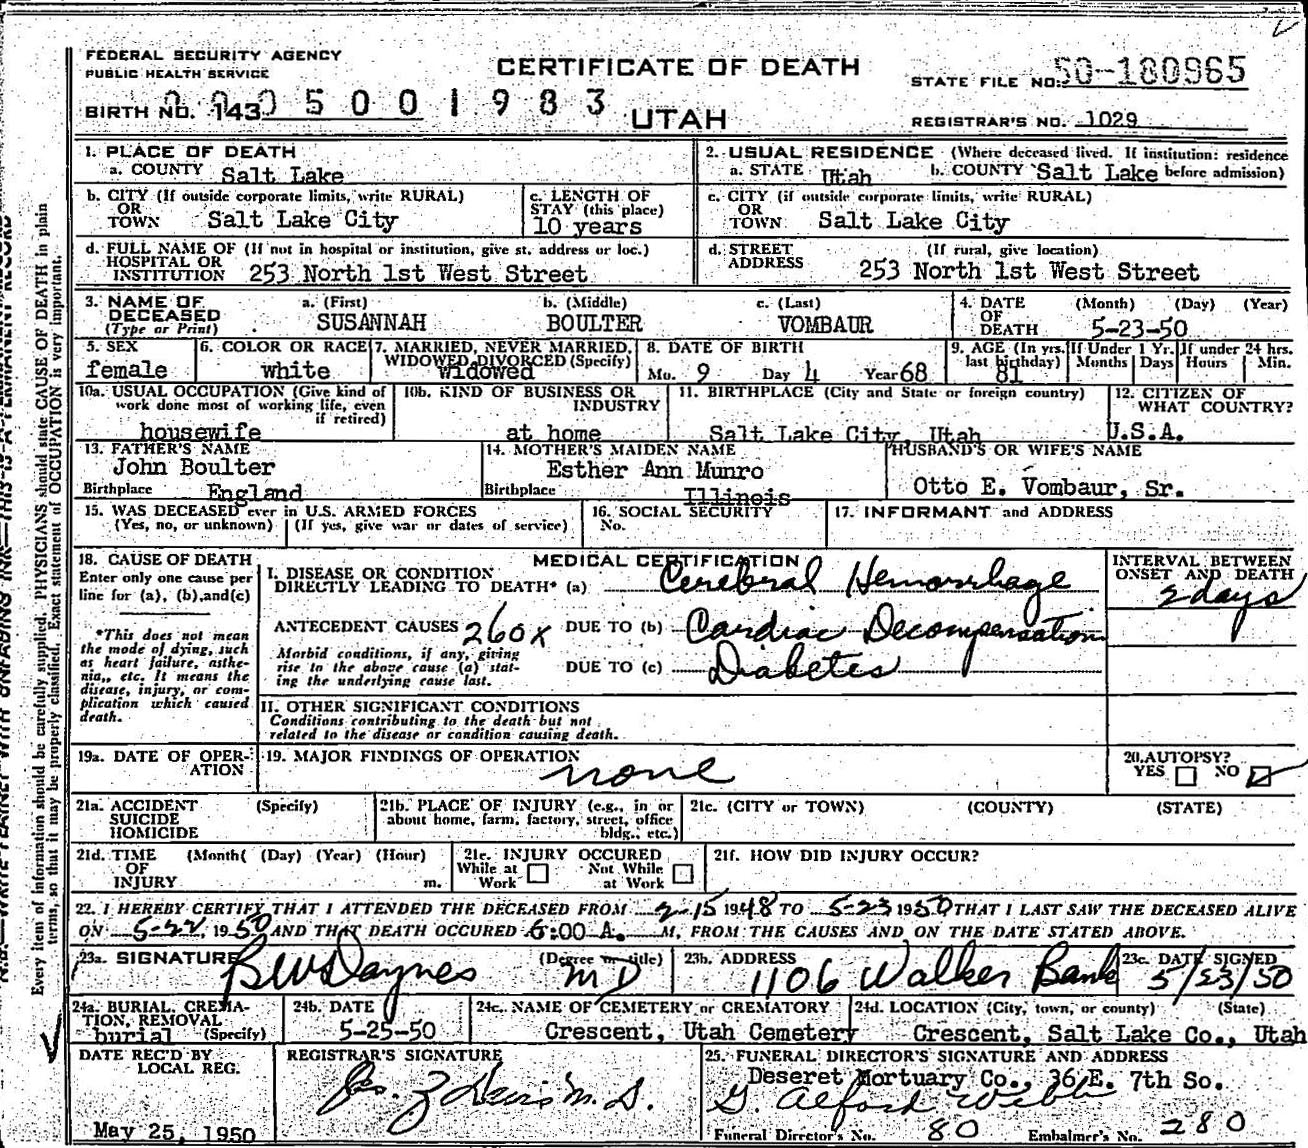 FEDERAL SECURITY AGENCY
PUBLIC HEALTH SERVICE
CERTIFICATE OF DEATH
STATE FILE NO. 50-180965
BIRTH NO. 143 0005001983
UTAH
REGISTRAR'S NO. 1029
1. PLACE OF DEATH
a. COUNTY Salt Lake
2. USUAL RESIDENCE (Where deceased lived. If institution: residence
a. STATE Utah b. COUNTY Salt Lake before admission)
b. CITY (If outside corporate limits, write RURAL)
OR
TOWN Salt Lake City
c. LENGTH OF
STAY (this place)
10 years
c. CITY (if outside corporate limits, write RURAL)
OR
TOWN Salt Lake City
d. FULL NAME OF (If not in hospital or institution, give st. address or loc.)
HOSPITAL OR
INSTITUTION 253 North 1st West Street
d. STREET (If rural, give location)
ADDRESS 253 North 1st West Street
3. NAME OF
DECEASED
(Type or Print)
a. (First) b. (Middle) c. (Last)
SUSANNAH BOULTER VOMBAUR
4. DATE (Month) (Day) (Year)
OF
DEATH 5-23-50
5. SEX
female
6. COLOR OR RACE
white
7. MARRIED, NEVER MARRIED,
WIDOWED, DIVORCED (Specify)
widowed
8. DATE OF BIRTH
Mo. 9 Day 4 Year 68
9. AGE (In yrs. last birthday)
81
If Under 1 Yr.
Months Days
If under 24 hrs.
Hours Min.
10a. USUAL OCCUPATION (Give kind of
work done most of working life, even
if retired)
housewife
10b. KIND OF BUSINESS OR
INDUSTRY
at home
11. BIRTHPLACE (City and State or foreign country)
Salt Lake City, Utah
12. CITIZEN OF
WHAT COUNTRY?
U.S.A.
13. FATHER'S NAME
John Boulter
Birthplace England
14. MOTHER'S MAIDEN NAME
Esther Ann Munro
Birthplace Illinois
HUSBAND'S OR WIFE'S NAME
Otto E. Vombaur, Sr.
15. WAS DECEASED ever in U.S. ARMED FORCES
(Yes, no, or unknown) (If yes, give war or dates of service)
16. SOCIAL SECURITY
No.
17. INFORMANT and ADDRESS
18. CAUSE OF DEATH
Enter only one cause per
line for (a), (b), and (c)
*This does not mean
the mode of dying, such
as heart failure, asthe-
nia, etc. It means the
disease, injury, or com-
plication which caused
death.
MEDICAL CERTIFICATION
I. DISEASE OR CONDITION
DIRECTLY LEADING TO DEATH* (a) Cerebral Hemorrhage
ANTECEDENT CAUSES 260x DUE TO (b) Cardiac Decompensation
Morbid conditions, if any, giving
rise to the above cause (a) stat-
ing the underlying cause last.
DUE TO (c) Diabetes
II. OTHER SIGNIFICANT CONDITIONS
Conditions contributing to the death but not
related to the disease or condition causing death.
INTERVAL BETWEEN
ONSET AND DEATH
2 days
19a. DATE OF OPER-
ATION
19. MAJOR FINDINGS OF OPERATION
none
20. AUTOPSY?
YES NO
21a. ACCIDENT (Specify)
SUICIDE
HOMICIDE
21b. PLACE OF INJURY (e.g., in or
about home, farm, factory, street, office
bldg., etc.)
21c. (CITY or TOWN) (COUNTY) (STATE)
21d. TIME (Month( (Day) (Year) (Hour)
OF
INJURY m.
21e. INJURY OCCURED
While at Work Not While at Work
21f. HOW DID INJURY OCCUR?
22. I HEREBY CERTIFY THAT I ATTENDED THE DECEASED FROM 2-15 1948 TO 5-23 1950 THAT I LAST SAW THE DECEASED ALIVE
ON 5-22, 1950 AND THAT DEATH OCCURED 6:00 A. M, FROM THE CAUSES AND ON THE DATE STATED ABOVE.
23a. SIGNATURE (Degree or title)
BW Daynes MD
23b. ADDRESS
1106 Walker Bank
23c. DATE SIGNED
5/23/50
24a. BURIAL, CREMA-
TION, REMOVAL
(Specify)
burial
24b. DATE
5-25-50
24c. NAME OF CEMETERY or CREMATORY
Crescent, Utah Cemetery
24d. LOCATION (City, town, or county) (State)
Crescent, Salt Lake Co., Utah
DATE REC'D BY
LOCAL REG.
May 25, 1950
REGISTRAR'S SIGNATURE
M.D.
25. FUNERAL DIRECTOR'S SIGNATURE AND ADDRESS
Deseret Mortuary Co., 36 E. 7th So.
G. Alford Webb
Funeral Director's No. 80 Embalmer's No. 280
Every item of information should be carefully supplied. PHYSICIANS should state CAUSE OF DEATH in plain
terms, so that it may be properly classified. Exact statement of OCCUPATION is very important.